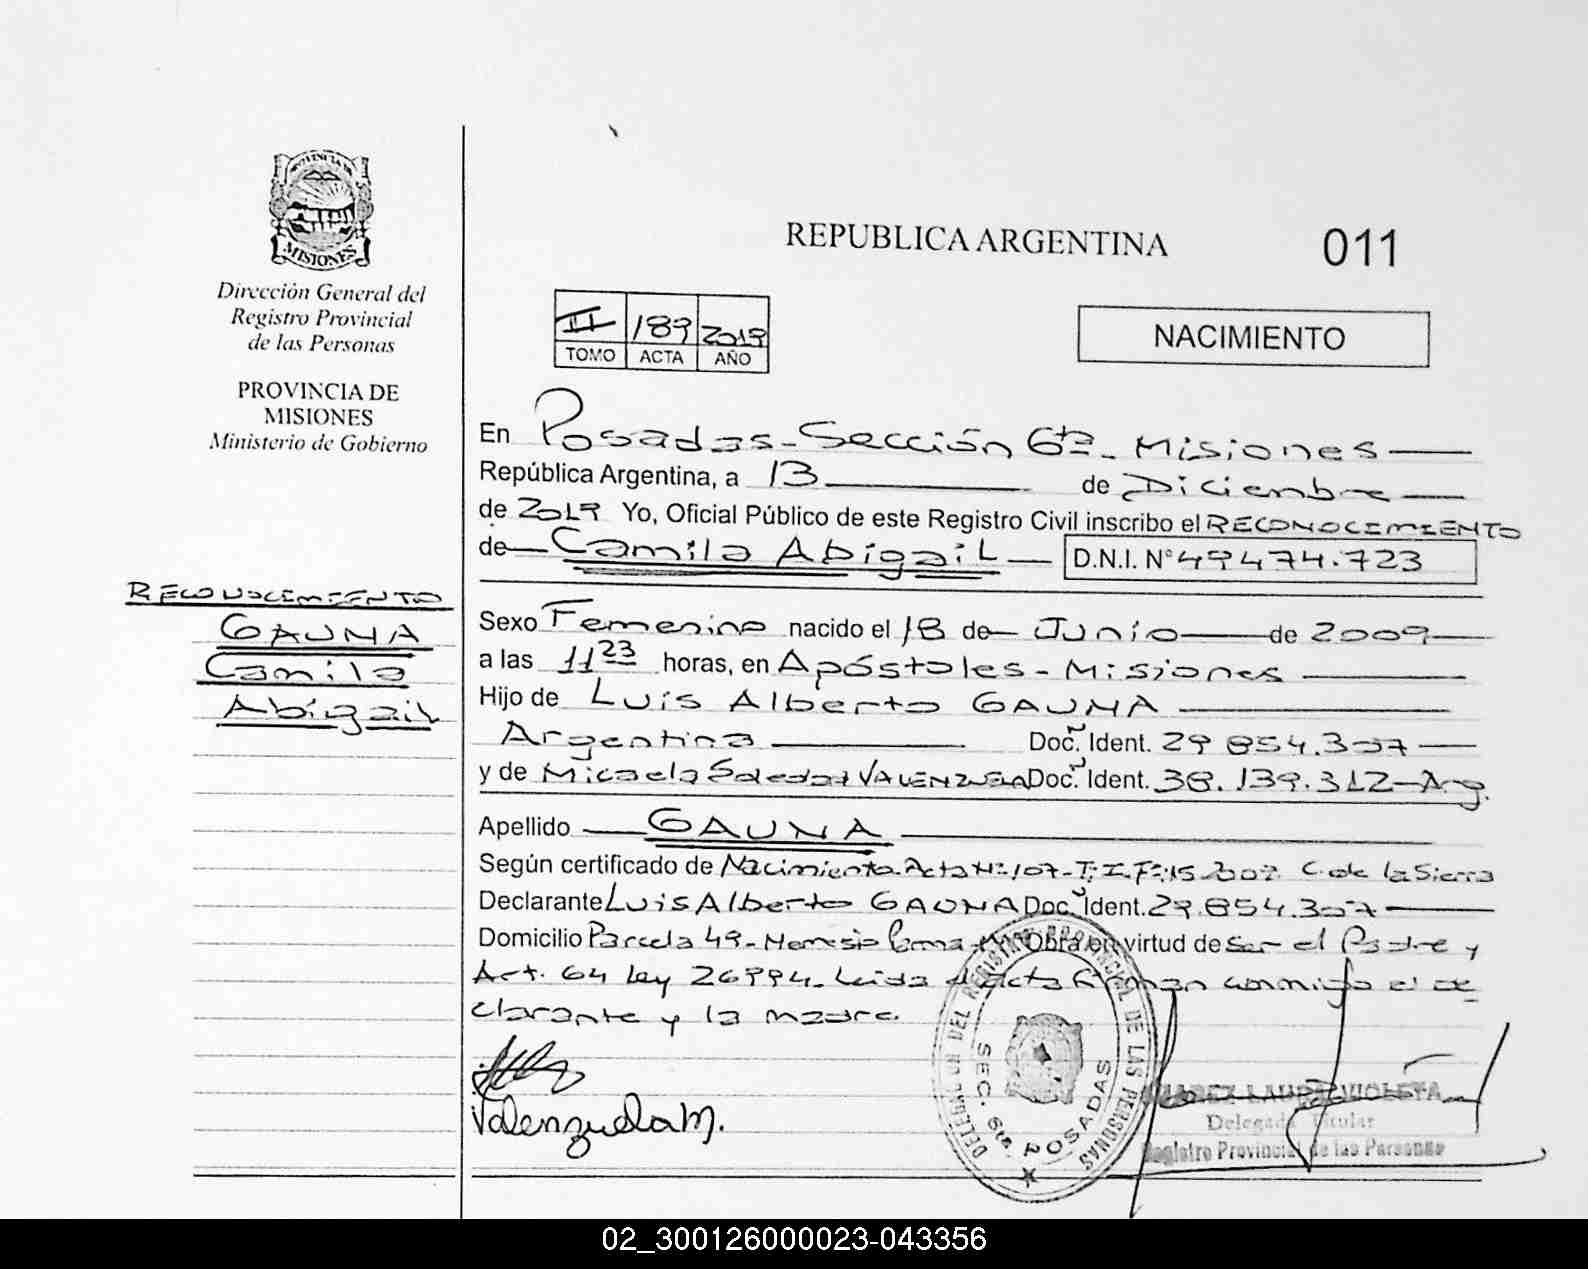 PROVINCIA DE
MISIONES
Dirección General del
Registro Provincial
de las Personas
PROVINCIA DE
MISIONES
Ministerio de Gobierno
RECONOCIMIENTO
GAUNA
Camila
Abigail
REPUBLICA ARGENTINA
011
II 189 2019
TOMO ACTA AÑO
NACIMIENTO
En Posadas - Sección 6ta - Misiones
República Argentina, a 13 de Diciembre
de 2019 Yo, Oficial Público de este Registro Civil inscribo el RECONOCIMIENTO
de Camila Abigail D.N.I. N° 49474.723
Sexo Femenino nacido el 18 de Junio de 2009
a las 11 23 horas, en Apóstoles - Misiones
Hijo de Luis Alberto GAUNA
Argentina Doc. Ident. 29 854.307
y de Micaela Soledad VALENZUELA Doc. Ident. 38.139.312 - Arg.
Apellido GAUNA
Según certificado de Nacimiento Acta Nº 107 - T: I F: 15 C. de la Sierra
Declarante Luis Alberto GAUNA Doc. Ident. 29.854.307
Domicilio Parcela 49 - Nemesio Parma - Obra en virtud de Ser el Padre y
Art. 64 Ley 26994. Leida el Acta Firman conmigo el de
clarante y la madre.
Valenzuela M.
DELEGACION DEL REGISTRO PROVINCIAL DE LAS PERSONAS
SEC. 6ta. POSADAS
LAURA VIOLETA
Delegada Titular
Registro Provincial de las Personas
02_300126000023-043356